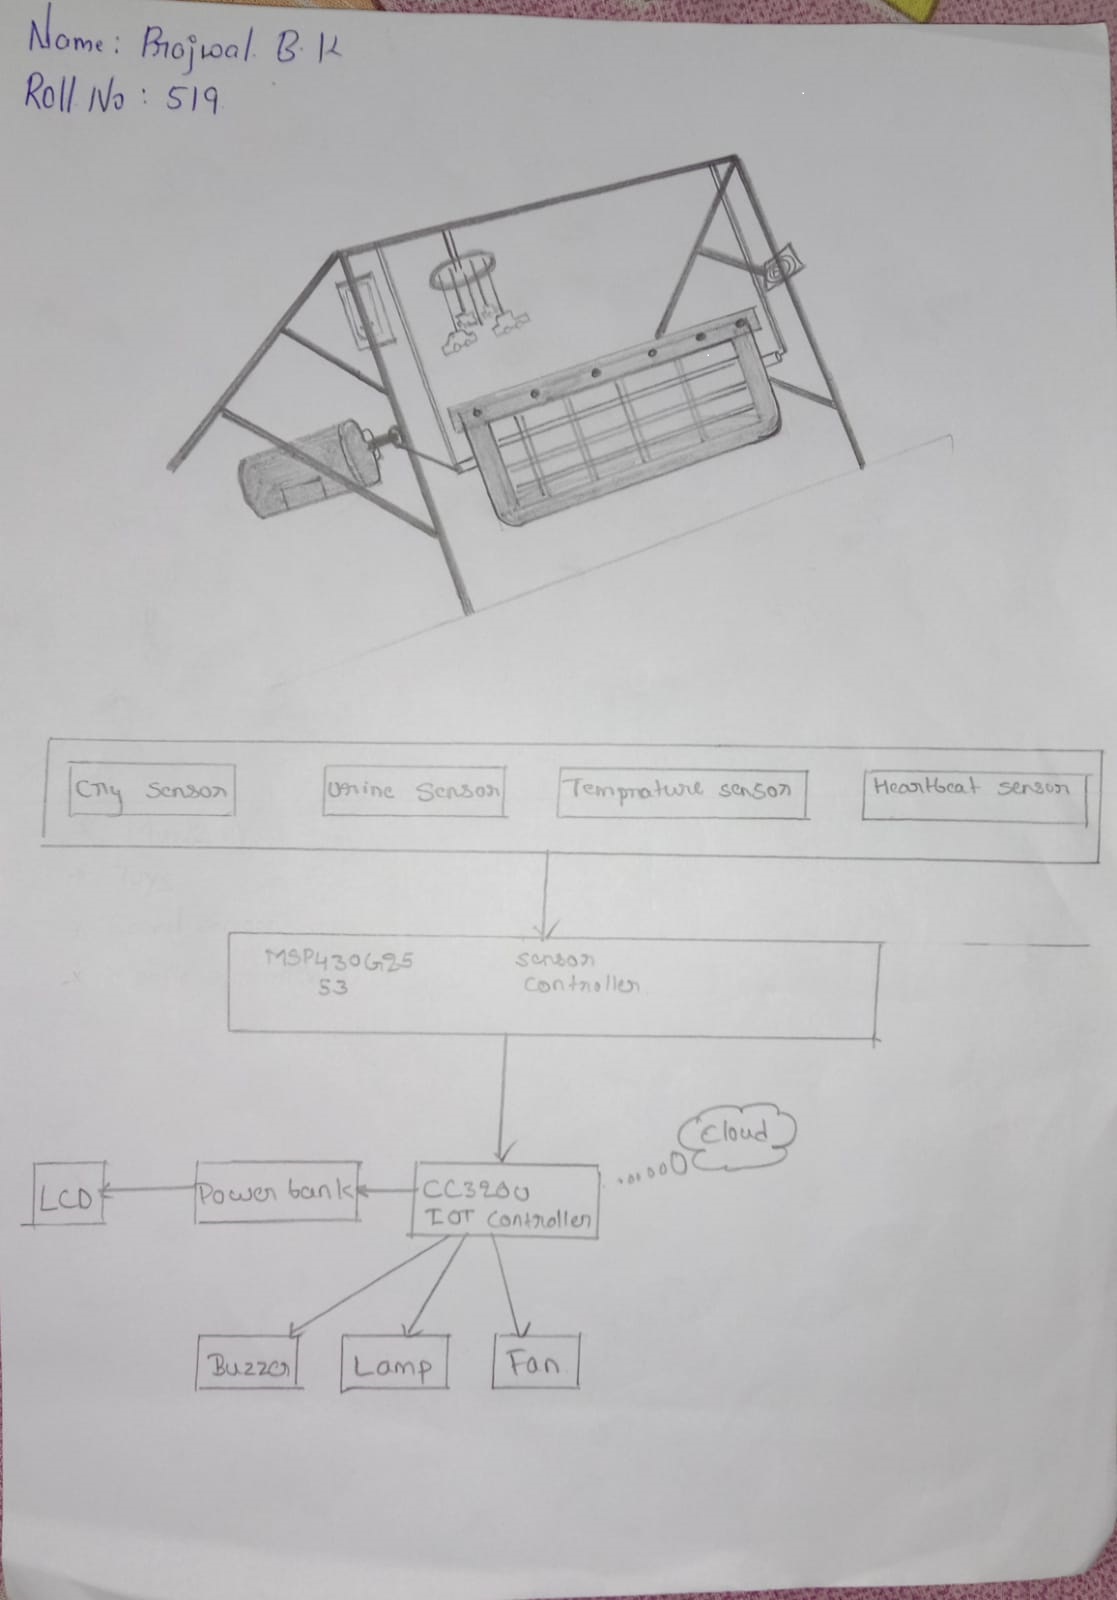 Name: Prajwal. B. K
Roll No: 519
Cry sensor
Urine Sensor
Temprature sensor
Heartbeat sensor
MSP430G25
53
sensor
controller
Cloud
LCD
Power bank
CC3200
IOT Controller
Buzzer
Lamp
Fan